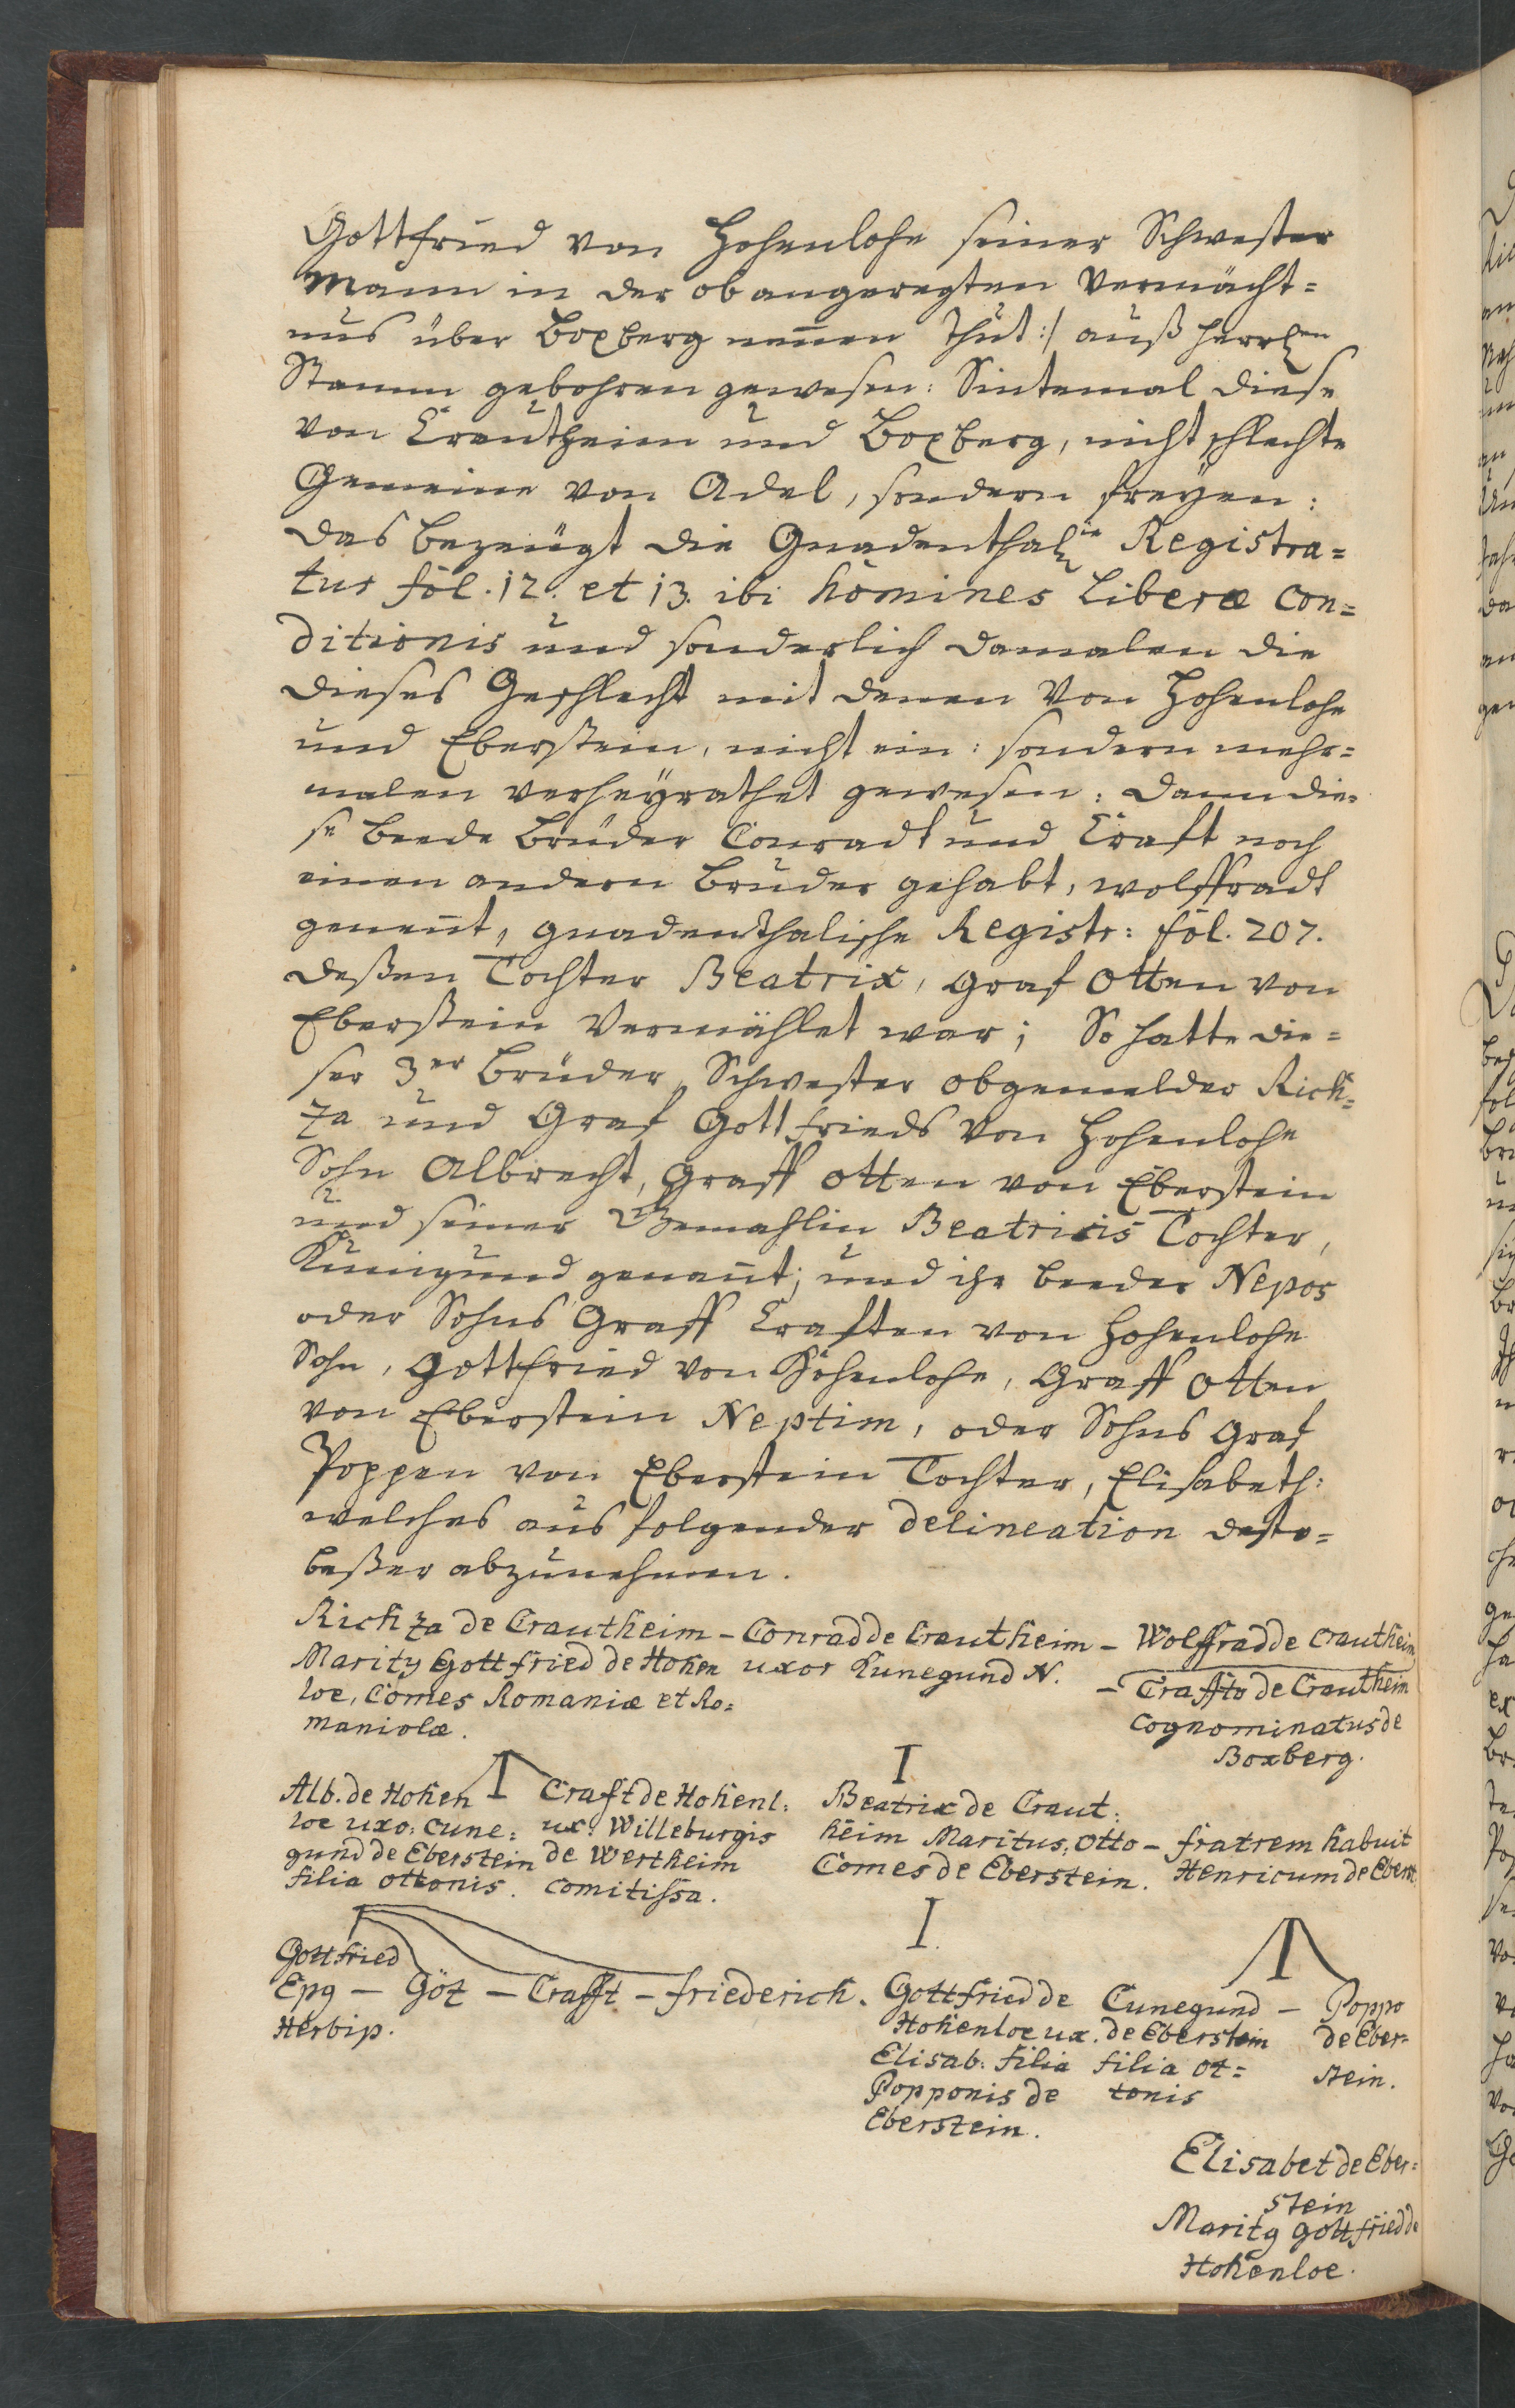 Gottfried von Hohenlohe seiner Schwester
Mann in der obangeregten Vermächt=
nus über Boxberg nen̄en thut :/ auß herrl:en
Stamm gebohren gewesen: Sintemal diese
von Crautheim und Boxberg, nicht schlechte
Gemeine von Adel, sondern freyen:
das bezeugt die Gnadenthal: Registra=
tur fol. 12. et 13. ibi homines Liberæ con=
ditionis und sonderlich damalen die
dieses Geschlecht mit denen von Hohenlohe
und Eberstein, nicht ein: sondern mehr=
malen verheyrathet gewesen: dann die=
se beede Brüder Conradt und Craft noch
einen andern Bruder gehabt, wolffradt
genen̄t, gnadenthalische Registr: fol. 207.
deßen Tochter Beatrix, Graf Otten von
Eberstein Vermählet war; So hatte die=
ser 3er Brüder, Schwester obgemelder Rich=
za und Graf Gottfrieds von Hohenlohe
Sohn Albrecht, Graff Otten von Eberstein
und seiner Gemahlin Beatricis Tochter,
Kunigund genan̄t; und ihr beeder Nepos
oder Sohns Graff Craften von Hohenlohe
Sohn, Gottfried von Hohenlohe, Graff Otten
von Eberstein Neptim, oder Sohns Graf
Poppen von Eberstein Tochter, Elisabeth:
welches aus folgender delineation desto=
beßer abzunehmen.
Richza de Crautheim – Conrad de Crautheim – Wolffrad de Crautheim
Marity Gottfried de Hohen uxor Kunegund N. – Craffto de Crautheim
loe, Comes Romaniæ et Ro=
maniolæ. cognominatus de
Boxberg.
Alb. de Hohen Craft de Hohenl: Beatrix de Craut:
loe uxo: Cune= ux: Willeburgis heim Maritus, Otto – fratrem habuit
gund de Eberstein de Wertheim Comes de Eberstein. Henricum de Eberst.
filia ottonis. comitissa.
Gottfried
Epg – Götz – Crafft – friederich. Gottfried de Cunegund – Poppo
Herbip. Hohenloe ux. de Eberstein de Eber=
Elisab. filia filia ot= stein.
Popponis de tonis
Eberstein.
Elisabet de Eber=
stein
Marity Gottfried de
Hohenloe.